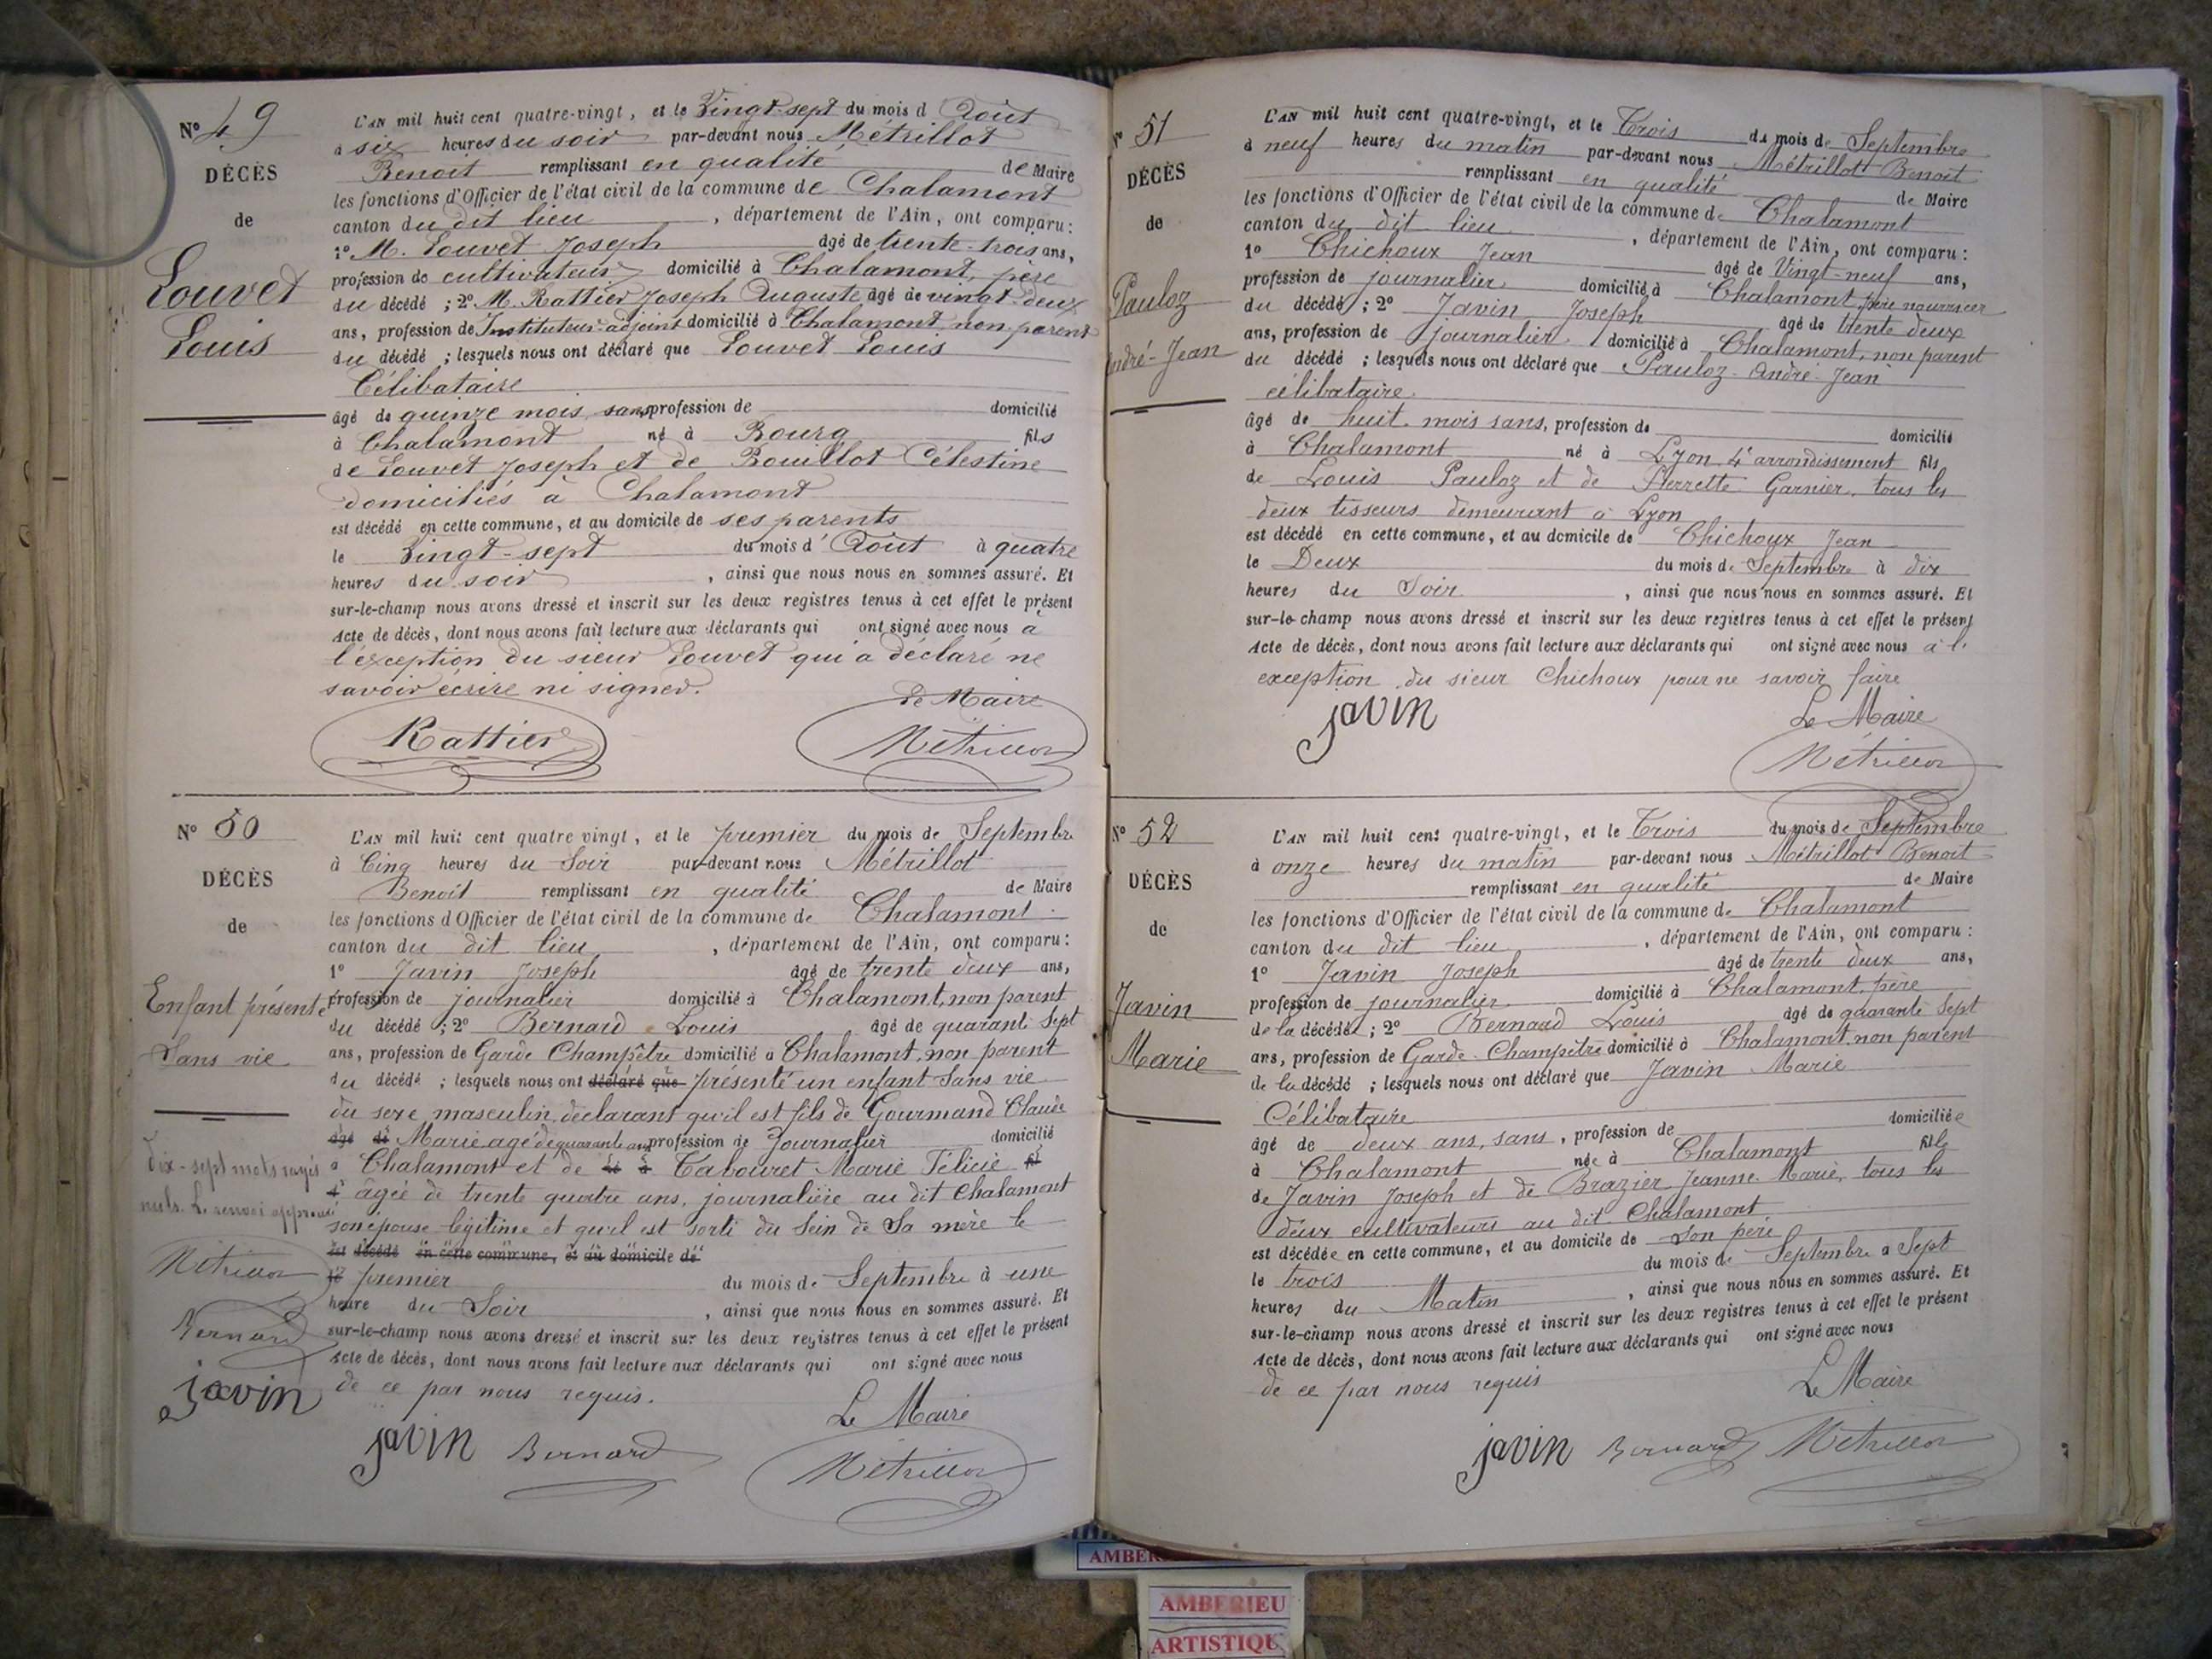 N° 49
DÉCÈS
de
Louvet
Louis
L'AN mil huit cent quatre-vingt, et le Vingt-sept du mois d Août
à six heures du soir par-devant nous Métrillot
Benoit remplissant en qualité de Maire
les fonctions d'Officier de l'état civil de la commune de Chalamont
canton du dit lieu , département de l'Ain, ont comparu:
1° M. Louvet Joseph âgé de trente-trois ans,
profession de cultivateur domicilié à Chalamont, père
du décédé ; 2° M. Rattier Joseph Auguste âgé de vingt deux
ans, profession de Instituteur-adjoint domicilié à Chalamont, non parent
du décédé ; lesquels nous ont déclaré que Louvet Louis
Célibataire
âgé de quinze mois, sans profession de domicilié
à Chalamont né à Bourg fils
de Louvet Joseph et de Bouillot Célestine
domiciliés à Chalamont
est décédé en cette commune, et au domicile de ses parents
le Vingt-sept du mois d'Août à quatre
heures du soir , ainsi que nous nous en sommes assuré. Et
sur-le-champ nous avons dressé et inscrit sur les deux registres tenus à cet effet le présent
Acte de décès, dont nous avons fait lecture aux déclarants qui ont signé avec nous à
l'exception du sieur Louvet qui a déclaré ne
savoir écrire ni signer.
Le Maire
Rattier Métrillot
N° 50
DÉCÈS
de
Enfant présenté
Sans vie
Dix-sept mots rayés
nuls. Le renvoi approuvé
Métrillot
Bernard
javin
L'AN mil huit cent quatre vingt, et le premier du mois de Septembre
à Cinq heures du Soir par-devant nous Métrillot
Benoit remplissant en qualité de Maire
les fonctions d'Officier de l'état civil de la commune de Chalamont
canton du dit lieu , département de l'Ain, ont comparu:
1° Javin Joseph âgé de trente deux ans,
profession de journalier domicilié à Chalamont, non parent
du décédé ; 2° Bernard Louis âgé de quarante Sept
ans, profession de Garde Champêtre domicilié à Chalamont, non parent
du décédé ; lesquels nous ont déclaré que présenté un enfant Sans vie
du sexe masculin, déclarant qu'il est fils de Gourmand Claude
âgé de Marie agé de quarante ans profession de Journalier domicilié
à Chalamont et de né à Tabouret Marie Félicie fil
d âgée de trente quatre ans, journalière au dit Chalamont
son épouse légitime et qu'il est sorti du Sein de Sa mère le
est décédé en cette commune, et au domicile de
le premier du mois de Septembre à une
heure du Soir , ainsi que nous nous en sommes assuré. Et
sur-le-champ nous avons dressé et inscrit sur les deux registres tenus à cet effet le présent
Acte de décès, dont nous avons fait lecture aux déclarants qui ont signé avec nous
de ce par nous requis.
Le Maire
javin Bernard Métrillot
N° 51
DÉCÈS
de
Pauloz
André-Jean
L'AN mil huit cent quatre-vingt, et le Trois du mois de Septembre
à neuf heures du matin par-devant nous Métrillot Benoit
remplissant en qualité de Maire
les fonctions d'Officier de l'état civil de la commune de Chalamont
canton du dit lieu , département de l'Ain, ont comparu:
1° Chichoux Jean âgé de Vingt-neuf ans,
profession de journalier domicilié à Chalamont, père nourricier
du décédé ; 2° Javin Joseph âgé de trente deux
ans, profession de journalier domicilié à Chalamont, non parent
du décédé ; lesquels nous ont déclaré que Pauloz André Jean
célibataire
âgé de huit mois sans, profession de domicilié
à Chalamont né à Lyon 4e arrondissement fils
de Louis Pauloz et de Pierrette Garnier, tous les
deux tisseurs demeurant à Lyon
est décédé en cette commune, et au domicile de Chichoux Jean
le Deux du mois de Septembre à dix
heures du Soir , ainsi que nous nous en sommes assuré. Et
sur-le-champ nous avons dressé et inscrit sur les deux registres tenus à cet effet le présent
Acte de décès, dont nous avons fait lecture aux déclarants qui ont signé avec nous à l'
exception du sieur Chichoux pour ne savoir faire
javin Le Maire
Métrillot
N° 52
DÉCÈS
de
Javin
Marie
L'AN mil huit cent quatre-vingt, et le Trois du mois de Septembre
à onze heures du matin par-devant nous Métrillot Benoit
remplissant en qualité de Maire
les fonctions d'Officier de l'état civil de la commune de Chalamont
canton du dit lieu , département de l'Ain, ont comparu:
1° Javin Joseph âgé de trente deux ans,
profession de journalier domicilié à Chalamont, père
de la décédée ; 2° Bernard Louis âgé de quarante Sept
ans, profession de Garde-Champêtre domicilié à Chalamont, non parent
de la décédé ; lesquels nous ont déclaré que Javin Marie
Célibataire domiciliée
âgé de deux ans, sans , profession de
à Chalamont née à Chalamont fille
de Javin Joseph et de Brazier Jeanne-Marie, tous les
deux cultivateurs au dit Chalamont
est décédée en cette commune, et au domicile de son père
le trois du mois de Septembre à Sept
heures du Matin , ainsi que nous nous en sommes assuré. Et
sur-le-champ nous avons dressé et inscrit sur les deux registres tenus à cet effet le présent
Acte de décès, dont nous avons fait lecture aux déclarants qui ont signé avec nous
de ce par nous requis
Le Maire
javin Bernard Métrillot
AMBERIEU
ARTISTIQU